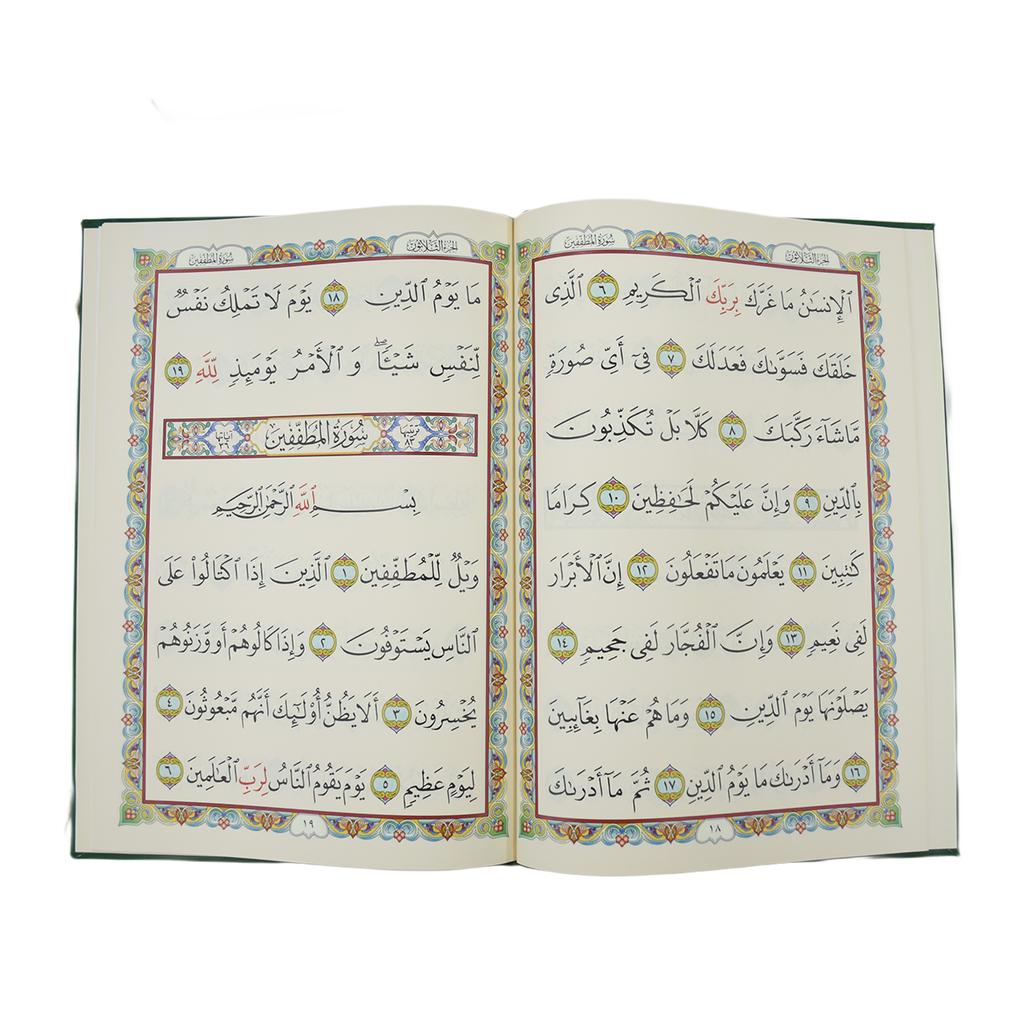 الجزء الثلاثون سورة المطففين
ٱلْإِنسَٰنُ مَا غَرَّكَ بِرَبِّكَ ٱلْكَرِيمِ ٦ ٱلَّذِى
خَلَقَكَ فَسَوَّىٰكَ فَعَدَلَكَ ٧ فِىٓ أَىِّ صُورَةٍ
مَّا شَآءَ رَكَّبَكَ ٨ كَلَّا بَلْ تُكَذِّبُونَ
بِٱلدِّينِ ٩ وَإِنَّ عَلَيْكُمْ لَحَٰفِظِينَ ١٠ كِرَامًا
كَٰتِبِينَ ١١ يَعْلَمُونَ مَا تَفْعَلُونَ ١٢ إِنَّ ٱلْأَبْرَارَ
لَفِى نَعِيمٍ ١٣ وَإِنَّ ٱلْفُجَّارَ لَفِى جَحِيمٍ ١٤
يَصْلَوْنَهَا يَوْمَ ٱلدِّينِ ١٥ وَمَا هُمْ عَنْهَا بِغَآئِبِينَ
١٦ وَمَآ أَدْرَىٰكَ مَا يَوْمُ ٱلدِّينِ ١٧ ثُمَّ مَآ أَدْرَىٰكَ
١٨
الجزء الثلاثون سورة المطففين
مَا يَوْمُ ٱلدِّينِ ١٨ يَوْمَ لَا تَمْلِكُ نَفْسٌ
لِّنَفْسٍ شَيْـًٔاۖ وَٱلْأَمْرُ يَوْمَئِذٍ لِّلَّهِ ١٩
ترتيبها ٨٣ سُورَةُ المُطَفِّفِين آياتها ٣٦
بِسْمِ ٱللَّهِ ٱلرَّحْمَٰنِ ٱلرَّحِيمِ
وَيْلٌ لِّلْمُطَفِّفِينَ ١ ٱلَّذِينَ إِذَا ٱكْتَالُوا۟ عَلَى
ٱلنَّاسِ يَسْتَوْفُونَ ٢ وَإِذَا كَالُوهُمْ أَو وَّزَنُوهُمْ
يُخْسِرُونَ ٣ أَلَا يَظُنُّ أُو۟لَٰٓئِكَ أَنَّهُم مَّبْعُوثُونَ ٤
لِيَوْمٍ عَظِيمٍ ٥ يَوْمَ يَقُومُ ٱلنَّاسُ لِرَبِّ ٱلْعَٰلَمِينَ ٦
١٩